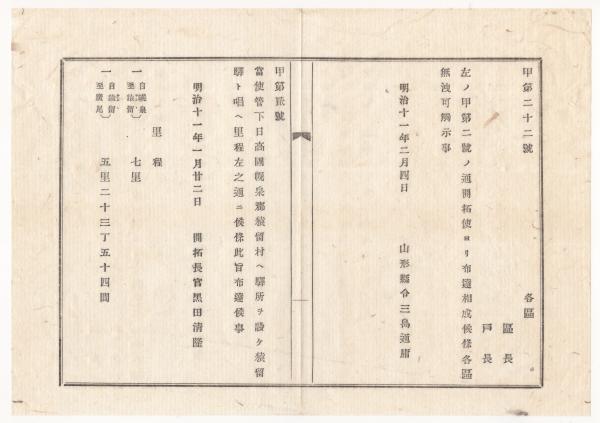 甲第二十二號
各區
區長
戸長
左ノ甲第二號ノ通開拓使ヨリ布達相成候條各區
無洩可觸示事
明治十一年二月四日　山形縣令三島通庸
甲第貳號
當使管下日高國幌泉郡猿留村ヘ驛所ヲ設ケ猿留
驛ト唱ヘ里程左之通ニ候條此旨布達候事
明治十一年一月廿二日　開拓長官黒田清隆
里程
一 自幌泉至猿留 七里
一 自猿留至廣尾 五里二十三丁五十四間